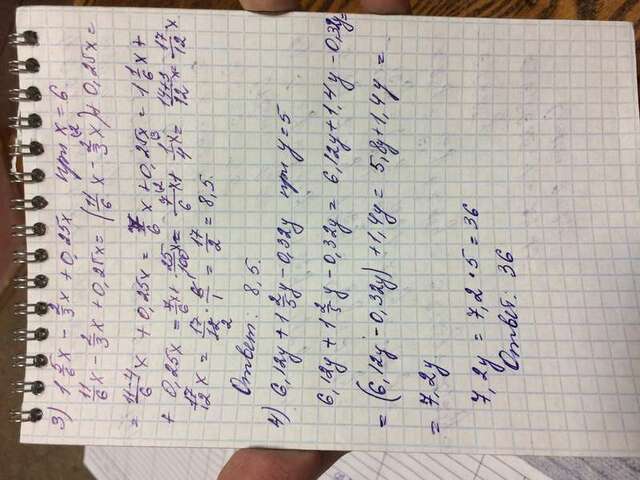 3) 1 5/6 x − 2/3 x + 0,25x при x = 6.
11/6 x − 2/3 x + 0,25x = (11/6 x − 2/3 x) + 0,25x =
= 11−4/6 x + 0,25x = 7/6 x + 0,25x = 1 1/6 x +
+ 0,25x = 7/6 x + 25/100 x = 7/6 x + 1/4 x = 14+3/12 x = 17/12 x
17/12 x = 17/12 · 6/1 = 17/2 = 8,5.
Ответ: 8,5.
4) 6,12y + 1 2/5 y − 0,32y при y = 5
6,12y + 1 2/5 y − 0,32y = 6,12y + 1,4y − 0,32y =
= (6,12y − 0,32y) + 1,4y = 5,8y + 1,4y =
= 7,2y
7,2y = 7,2 · 5 = 36
Ответ: 36